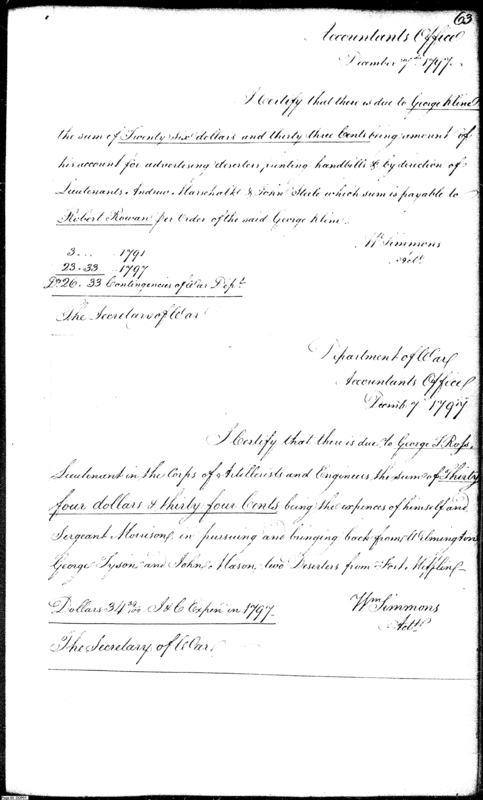 63
Accountants Office
December 7th 1797.
I Certify that there is due to George Kline
the sum of Twenty six dollars and thirty three Cents being amount of
his account for advertising deserters, printing handbills & by direction of
Lieutenants Andrew Marschalk & John Steele which sum is payable to
Robert Rowan per Order of the said George Kline.
Wm Simmons
Actt
3 . . . . . 1791
23.33 . . 1797
Ds 26.33 Contingencies of War Dept
The Secretary of War
Department of War
Accountants Office
Decemb. 7 1797
I Certify that there is due to George S. Ross
Lieutenant in the Corps of Artillerists and Engineers the sum of Thirty
four dollars & thirty four Cents being the expences of himself and
Sergeant Morrison, in pursuing and bringing back from Wilmington
George Tyson and John Mason two Deserters from Fort Mifflin
Dollars 34 34/100. I & C Expen in 1797.
Wm Simmons
Actt
The Secretary of War